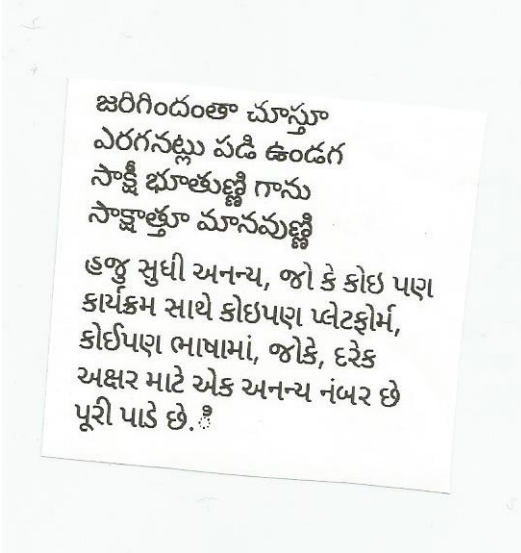 జరిగిందంతా చూస్తూ
ఎరగనట్లు పడి ఉండగ
సాక్షీ భూతుణ్ణి గాను
సాక్షాత్తూ మానవుణ్ణి
હજુ સુધી અનન્ય, જો કે કોઇ પણ
કાર્યક્રમ સાથે કોઇપણ પ્લેટફોર્મ,
કોઈપણ ભાષામાં, જોકે, દરેક
અક્ષર માટે એક અનન્ય નંબર છે
પૂરી પાડે છે.